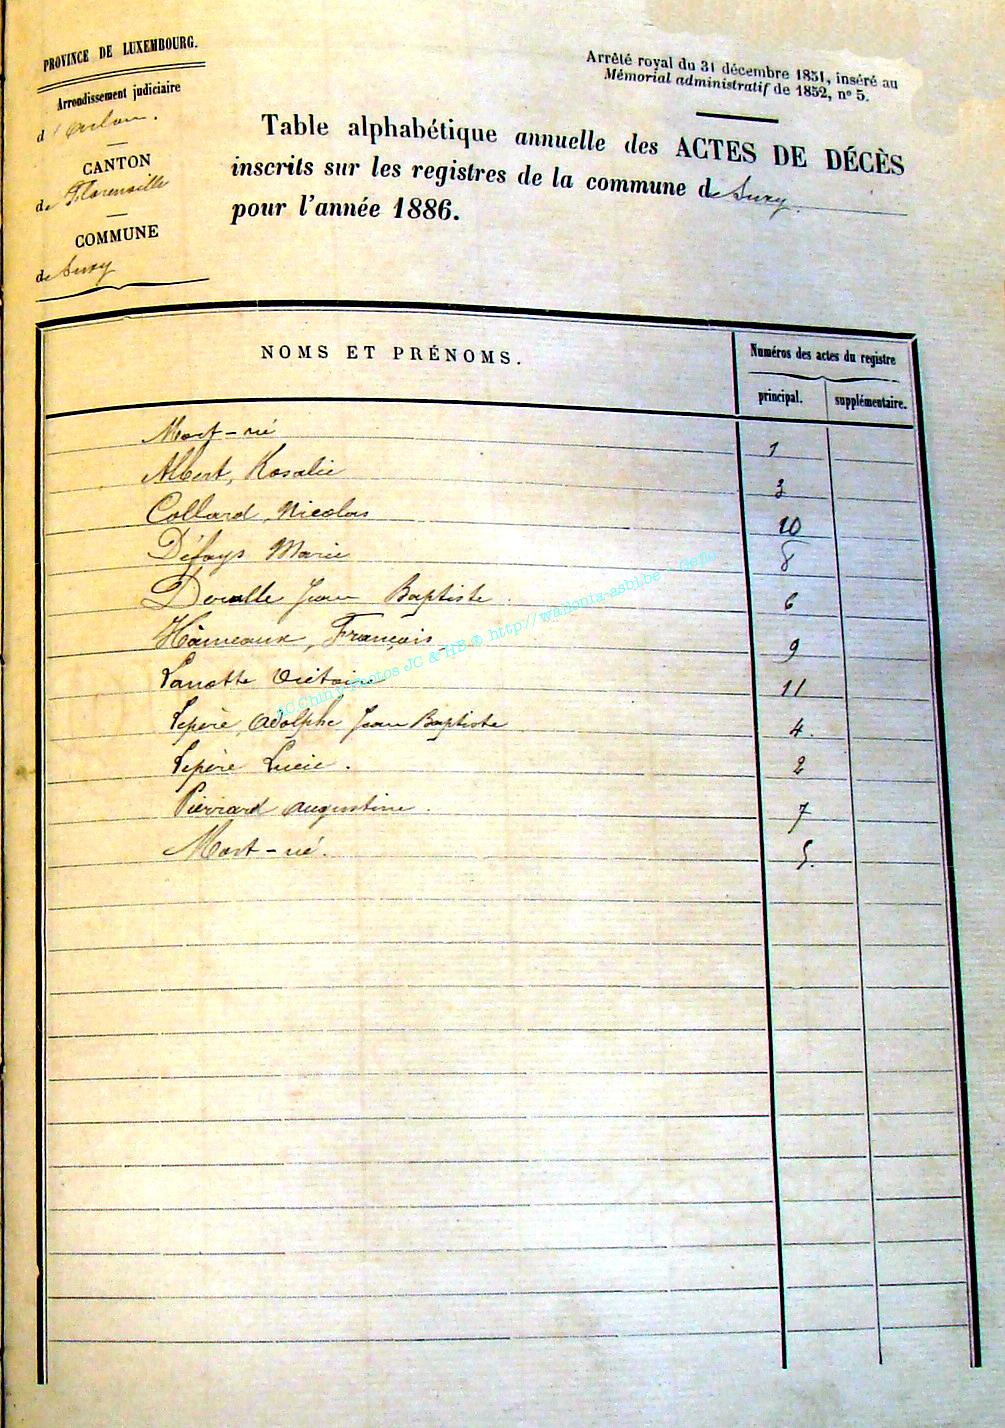 PROVINCE DE LUXEMBOURG.
Arrondissement judiciaire
d'Arlon.
CANTON
de Florenville
COMMUNE
de Suxy
Arrêté royal du 31 décembre 1851, inséré au
Mémorial administratif de 1852, n° 5.
Table alphabétique annuelle des ACTES DE DÉCÈS
inscrits sur les registres de la commune de Suxy.
pour l'année 1886.
NOMS ET PRÉNOMS.
Numéros des actes du registre
principal. supplémentaire.
Mort-né 1
Albert, Rosalie 3
Collard, Nicolas 10
Défays Marie 8
Jean Baptiste. 6
Hameaux, François 9
Lanotte 11
Lepère, Adolphe Jean Baptiste 4.
Lepère Lucie. 2
Pierrard Augustine. 7
Mort-né. 5.
AC Chiny Photos JC & HB © http://wallonia-asbl.be - GeflO